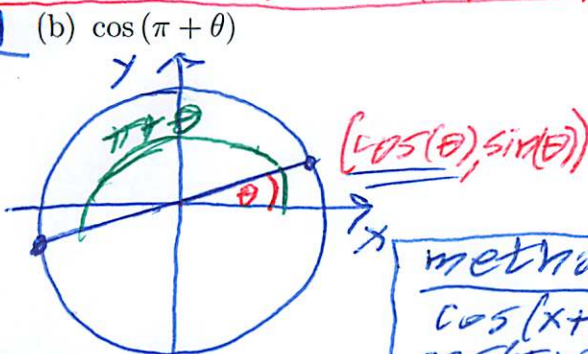 (b) cos (π + θ)
y
π + θ
(cos(θ), sin(θ))
θ
x
metho
cos(x+